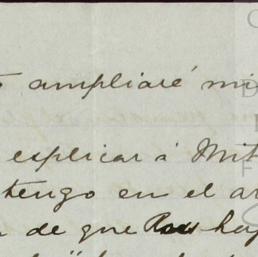 ampliaré mi
esplicar á Mit
tengo en el ar
de que hay